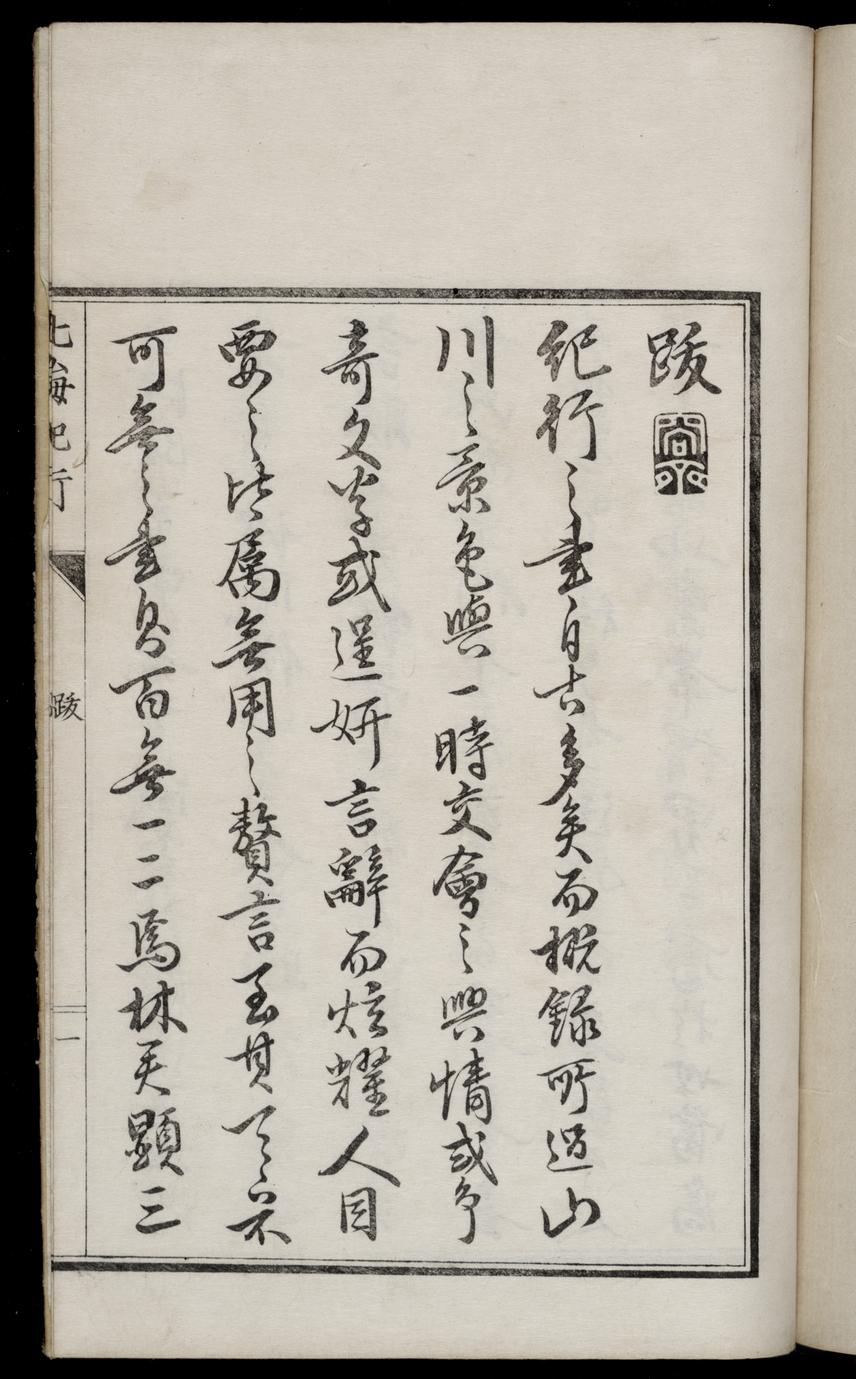 跋
紀行之書自古多矣而概録所過山
川之景色與一時交會之興情或争
奇文学或逞妍言辭而炫耀人目
要之皆属無用之贅言至其天下不
可無之書則百無一二焉林君顯三
北海紀行
跋
一